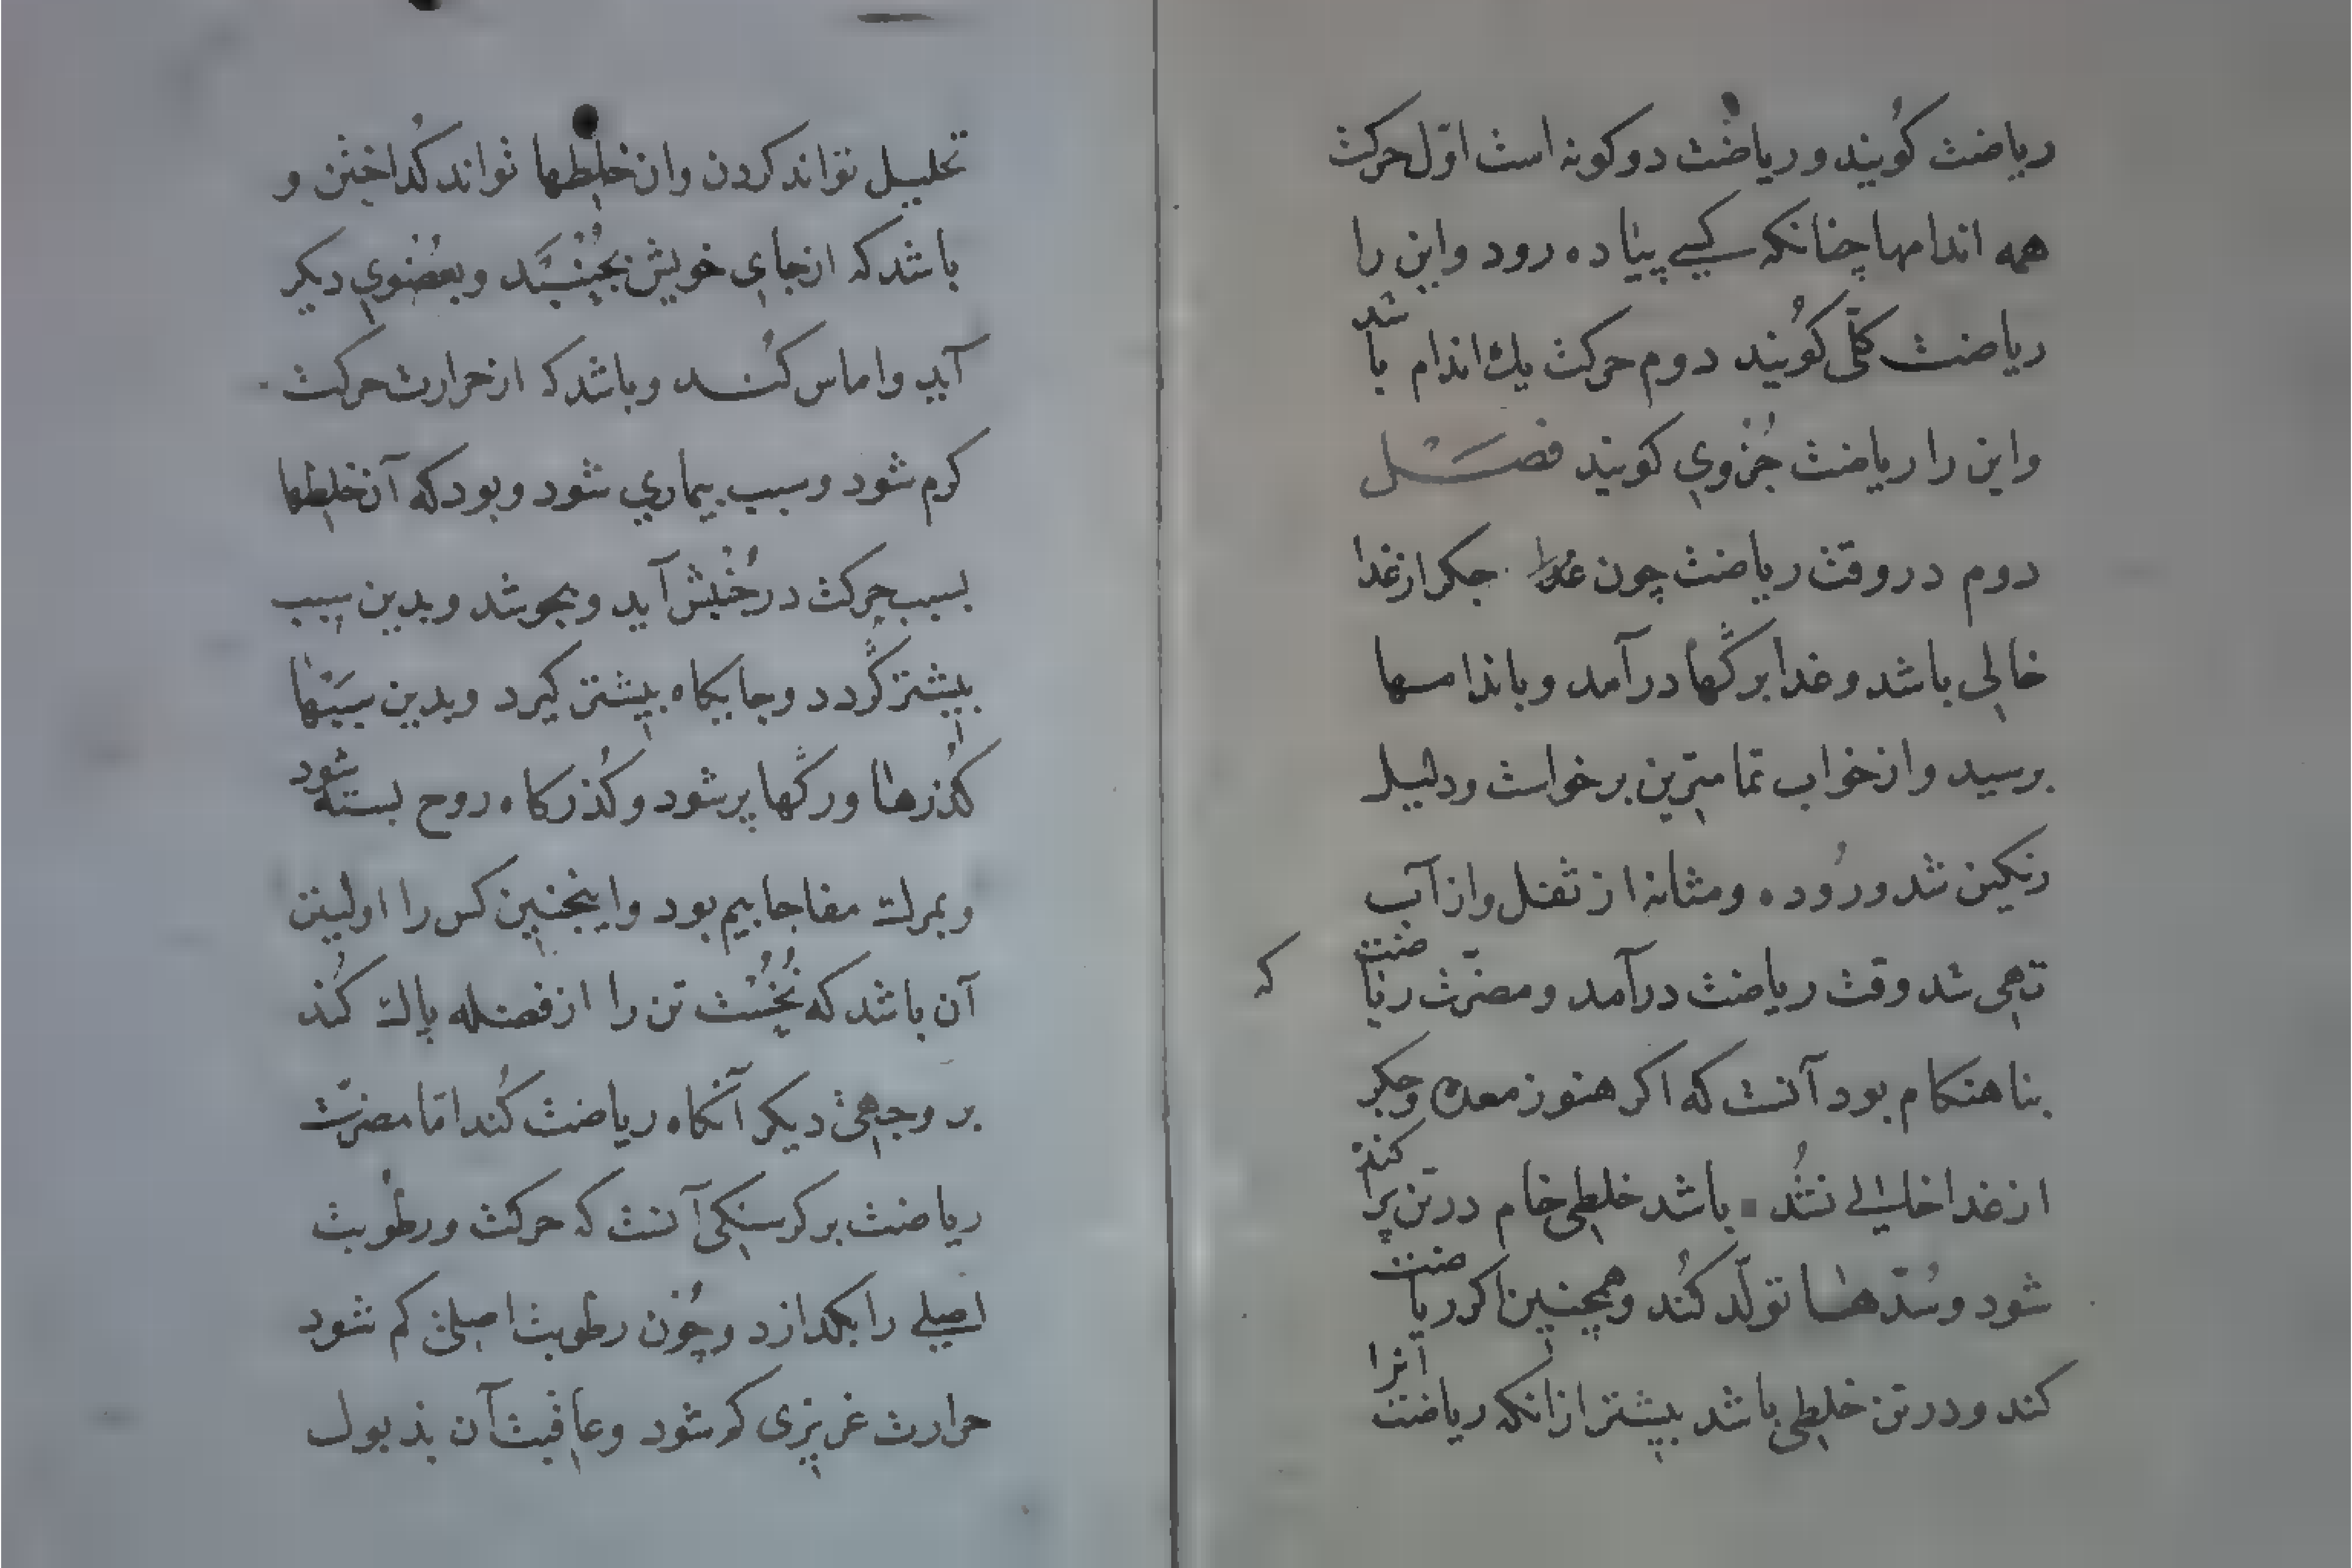 ریاضت کویند و ریاضت دو کونه است اوّل حرکت
همه اندامها چنانکه کسی پیاده رود و این را
ریاضت کلّی کویند دوم حرکت یك اندام باشد
و این را ریاضت جُزوی کویند فصل
دوم در وقت ریاضت چون جکر از غذا
خالی باشد و غذا برکها درآمد و باندامها
برسید و از خواب تمامترین برخواست و دلیل
رنکین شد و روده و مثانه از ثفل و از آب
تهی شد وقت ریاضت درآمد و مضرّت ریاضت که
بناهنکام بود آنست که اکر هنوز معده و جکر
از غذا خالی نشُد باشد خلطی خام در تن پراکنده
شود و سُدّها تولّد کُند و همچنین اکر ریاضت
کند و در تن خلطی باشد بیشتر از انکه ریاضت آنرا
تحلیل تواند کردن و ان خلطها تواند کُداختن و
باشد که از جای خویش بجُنبَد و بعُضوی دیکر
آید و اماس کُند و باشد که از حرارت حرکت
کرم شود و سبب بیماری شود و بود که آن خلطها
بسبب حرکت در جُنبش آید و بجوشد و بدین سبب
بیشتر کردد و جایکاه بیشتر کیرد و بدین سببها
کذرها و رکها پر شود و کُذرکاه روح بسته شود
و بمرك مفاجا بیم بود و اینچنین کس را اولیتر
آن باشد که نُخُست تن را از فضله پاك کُند
بر وجهی دیکر آنکاه ریاضت کُند امّا مضرّت
ریاضت بر کرسنکی آنست که حرکت و رطوبت
اصلی را بکدازد و چُون رطوبت اصلی کم شود
حرارت غریزی کم شود و عاقبت آن بذبول